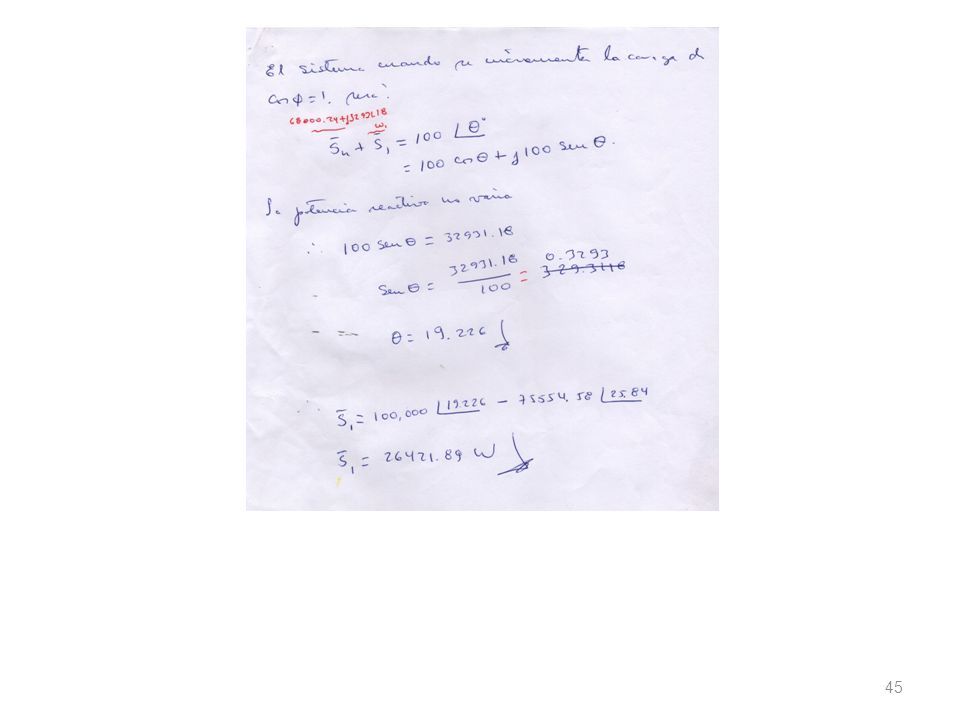 El sistema cuando se incrementa la carga de
cos φ = 1. sera:
68000.24+j32931.18
W₁
S̄ₙ + S̄₁ = 100 ∠θ°
= 100 cos θ + j 100 sen θ.
La potencia reactiva no varia
∴ 100 sen θ = 32931.18
sen θ = 32931.18 / 100 = 0.3293
329.3118
θ = 19.226
S̄₁ = 100,000 ∠19.226 - 75554.58 ∠25.84
S̄₁ = 26421.89 W
45